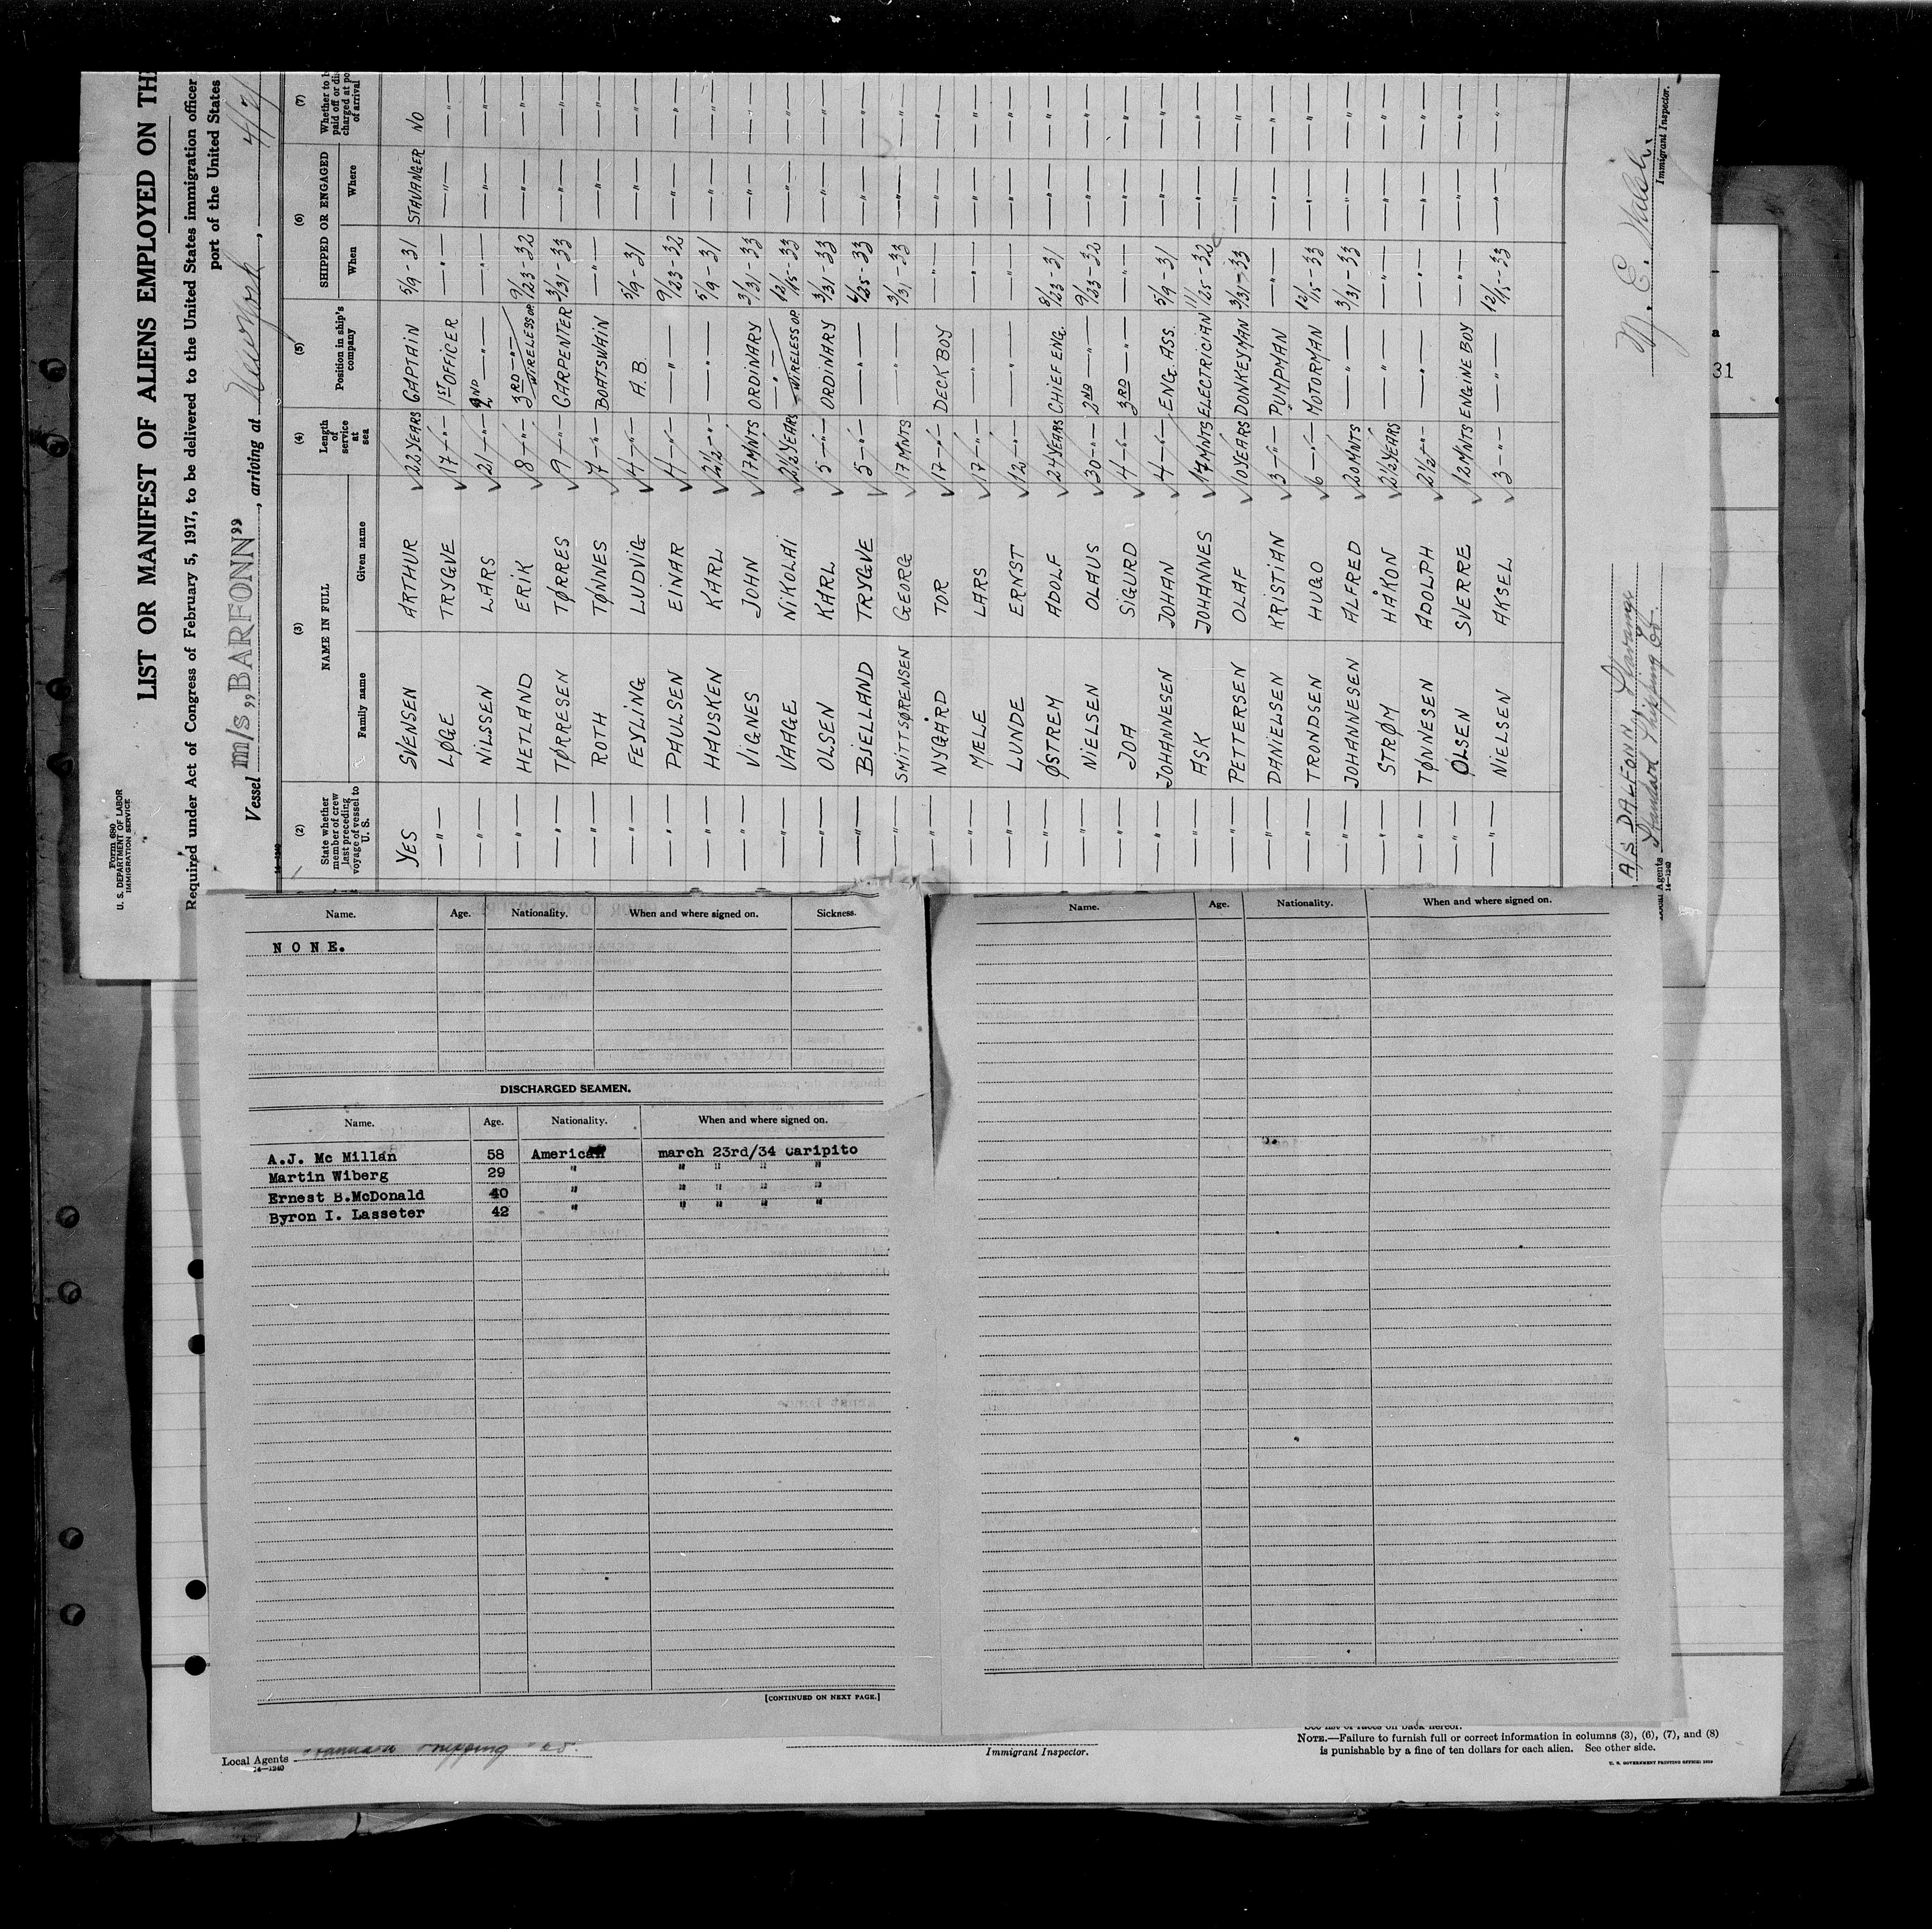 Form 680
U. S. DEPARTMENT OF LABOR
IMMIGRATION SERVICE
LIST OR MANIFEST OF ALIENS EMPLOYED ON TH
Required under Act of Congress of February 5, 1917, to be delivered to the United States immigration officer
port of the United States
Vessel m/s „BARFONN” , arriving at New York ,
14-1240
(2) (3) (4) (5) (6) (7)
State whether member of crew last preceding voyage of vessel to U. S. NAME IN FULL Length of service at sea Position in ship's company SHIPPED OR ENGAGED Whether to b paid off or dis charged at po of arrival
Family name Given name When Where
YES SVENSEN ARTHUR √ 22 YEARS CAPTAIN 5/9-31 STAVANGER NO
—"— LØGE TRYGVE √ 17 —"— 1ST OFFICER —"— —"— —"—
—"— NILSSEN LARS √ 21 —"— 2ND —"— —"— —"— —"—
—"— HETLAND ERIK √ 8 —"— 3RD —"— WIRELESS OP. 9/23-32 —"— —"—
—"— TØRRESEN TØRRES √ 9 —"— CARPENTER 3/31-33 —"— —"—
—"— ROTH TØNNES √ 7 —"— BOATSWAIN —"— —"— —"—
—"— FEYLING LUDVIG √ 4 —"— A.B. 5/9-31 —"— —"—
—"— PAULSEN EINAR √ 4 —"— —"— 9/23-32 —"— —"—
—"— HAUSKEN KARL √ 2½ —"— —"— 5/9-31 —"— —"—
—"— VIGNES JOHN √ 17 MNTS ORDINARY 3/31-33 —"— —"—
—"— VAAGE NIKOLAI √ 2½ YEARS —"— WIRELESS OP. 12/15-33 —"— —"—
—"— OLSEN KARL √ 5 —"— ORDINARY 3/31-33 —"— —"—
—"— BJELLAND TRYGVE √ 5 —"— —"— 6/25-33 —"— —"—
—"— SMITTSØRENSEN GEORG √ 17 MNTS —"— 3/31-33 —"— —"—
—"— NYGÅRD TOR √ 17 —"— DECK BOY —"— —"— —"—
—"— MÆLE LARS √ 17 —"— —"— —"— —"— —"—
—"— LUNDE ERNST √ 12 —"— —"— —"— —"— —"—
—"— ØSTREM ADOLF √ 24 YEARS CHIEF ENG. 8/23-31 —"— —"—
—"— NIELSEN OLAUS √ 30 —"— 2ND —"— 9/23-32 —"— —"—
—"— JOA SIGURD √ 4 —"— 3RD —"— —"— —"— —"—
—"— JOHANNESEN JOHAN √ 4 —"— ENG. ASS. 5/9-31 —"— —"—
—"— ASK JOHANNES √ 17 MNTS ELECTRICIAN 11/25-32 —"— —"—
—"— PETTERSEN OLAF √ 10 YEARS DONKEYMAN 3/31-33 —"— —"—
—"— DANIELSEN KRISTIAN √ 3 —"— PUMPMAN —"— —"— —"—
—"— TRONDSEN HUGO √ 6 —"— MOTORMAN 12/15-33 —"— —"—
—"— JOHANNESEN ALFRED √ 20 MNTS —"— 3/31-33 —"— —"—
—"— STRØM HÅKON √ 2½ YEARS —"— —"— —"— —"—
—"— TØNNESEN ADOLPH √ 2½ —"— —"— —"— —"— —"—
—"— OLSEN SVERRE √ 12 MNTS ENGINE BOY —"— —"— —"—
—"— NIELSEN AKSEL √ 3 —"— —"— 12/15-33 —"— —"—
A/S DALFONN, Stavanger
Agents Standard Shipping Co.
14-1240
Immigrant Inspector.
a
31
Name. Age. Nationality. When and where signed on. Sickness.
N O N E.
DISCHARGED SEAMEN.
Name. Age. Nationality. When and where signed on.
A.J. Mc Millan 58 American march 23rd/34 Caripito
Martin Wiberg 29 " " " " "
Ernest B.McDonald 40 " " " " "
Byron I. Lasseter 42 " " " " "
[CONTINUED ON NEXT PAGE.]
Name. Age. Nationality. When and where signed on.
Local Agents Standard Shipping Co.
14-1240
Immigrant Inspector.
See list of races on back hereof.
NOTE.—Failure to furnish full or correct information in columns (3), (6), (7), and (8)
is punishable by a fine of ten dollars for each alien. See other side.
U. S. GOVERNMENT PRINTING OFFICE: 1929